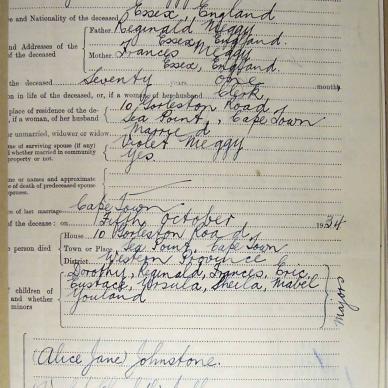 Essex, England
ce and Nationality of the deceased
Father. Reginald Meggy
Addresses of the of Essex, England.
of the deceased Mother. Frances Meggy
Essex, England.
the deceased Seventy years one months
on in life of the deceased, or, if a woman, of her husband Clerk
place of residence of the de- 10 Gorleston Road,
if a woman, of her husband Sea Point, Cape Town
or unmarried, widower or widow Married
me of surviving spouse (if any) Violet Meggy
whether married in community Yes.
property or not.
me or names and approximate
of death of predeceased spouse
spouses.
ce of last marriage Cape Town
of the decease: on Fifth October 1934
House 10 Gorleston Road,
person died Town or Place Sea Point, Cape Town
District Western Province
Dorothy, Reginald, Frances, Eric,
children of Eustace, Ursula, Sheila, Mabel
and whether Youland
minors
Majors
(Alice Jane) Johnstone.